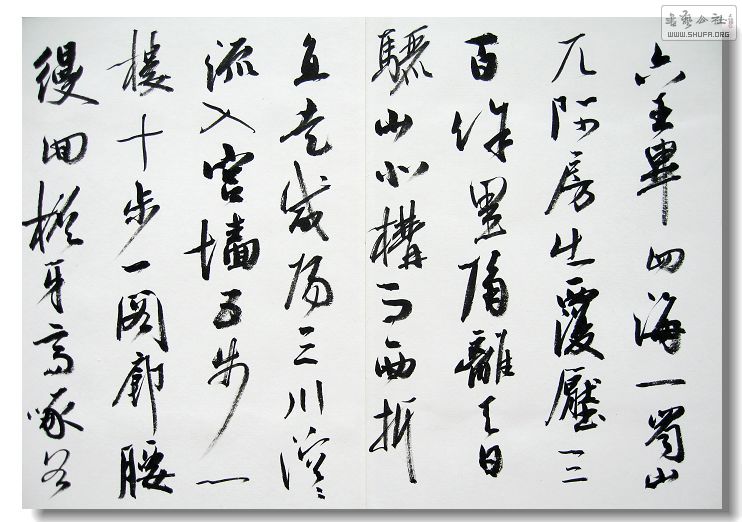 六王畢四海一蜀山
兀阿房出覆壓三
百餘里隔離天日
驪山北構而西折
直走咸陽三川溶〻
流入宮墻五步一
樓十步一閣廊腰
縵回檐牙高啄各
書藝公社
WWW.SHUFA.ORG